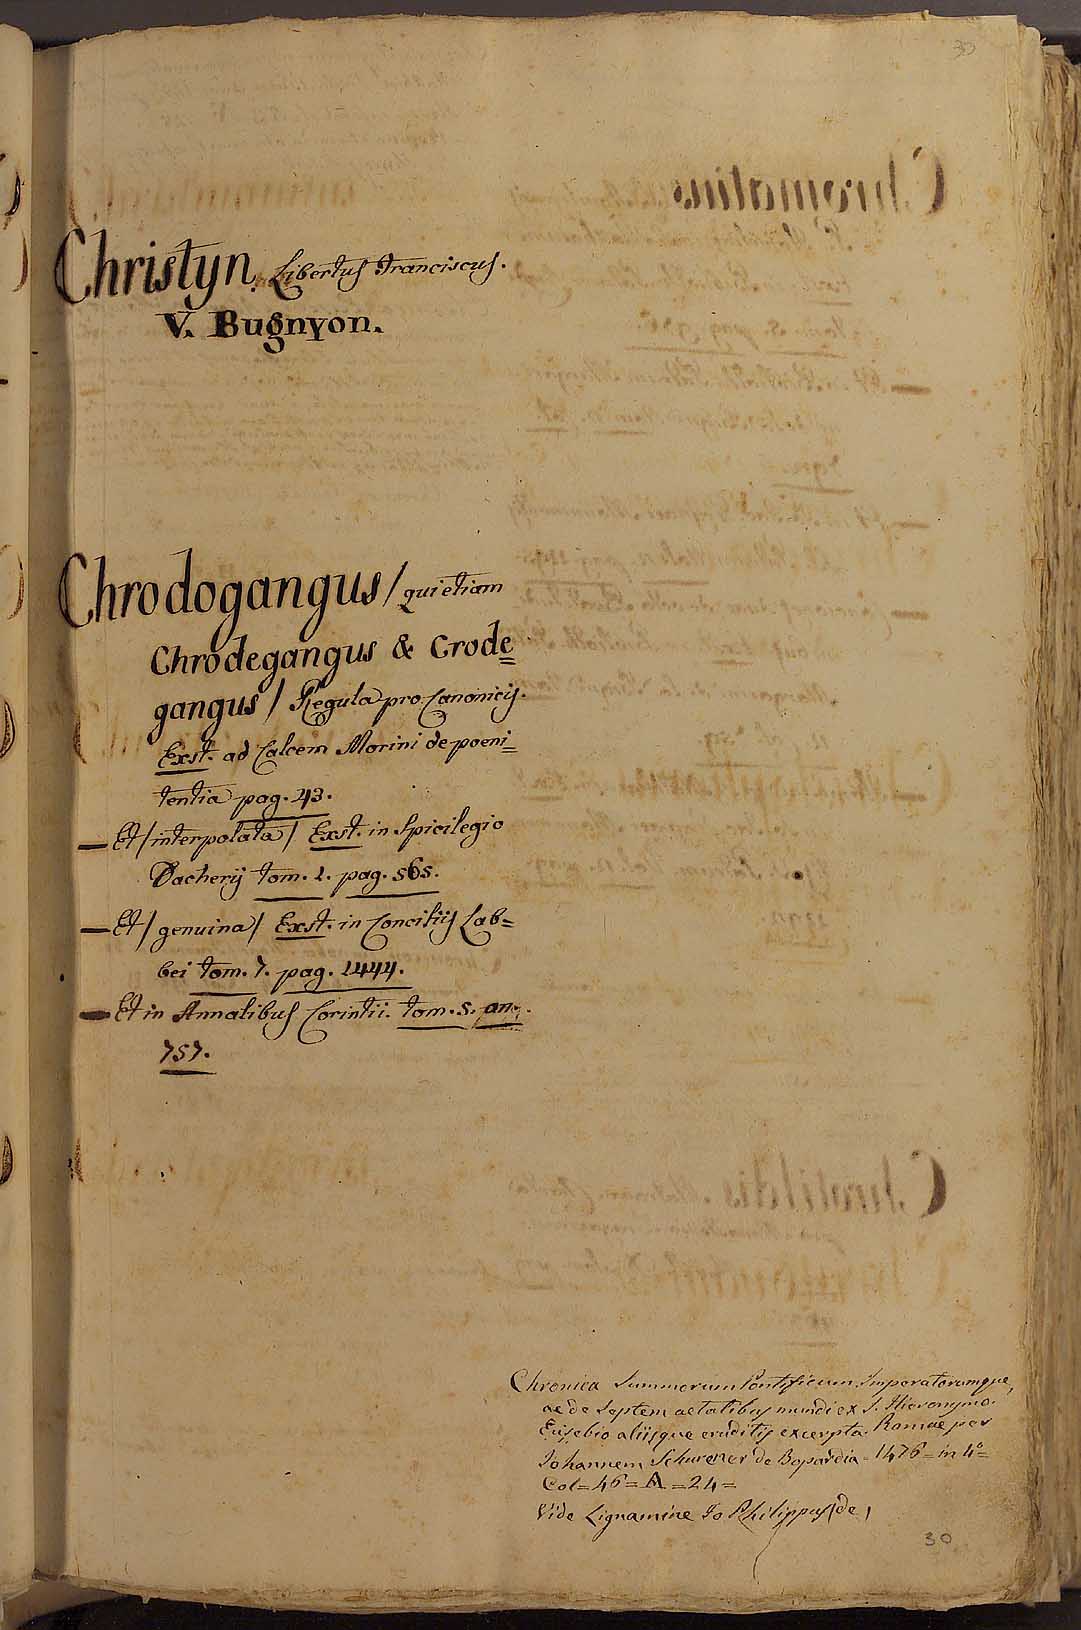 30
Christyn. Libertus Franciscus.
V. Bugnyon.
Chrodogangus / qui etiam
Chrodegangus & Crode=
gangus / Regula pro Canonicis.
Exst. ad Calcem Morini de poeni=
tentia pag. 43.
— Et / interpolata / Exst. in Spicilegio
Dacherij tom. 1. pag. 565.
— Et / genuina / Exst. in Concilijs Lab=
bei tom. 7. pag. 1444.
— Et in Annalibus Cointii. tom. 5. an.
757.
Chronica Summorum Pontificum Imperatorumque,
ac de Septem aetatibus mundi ex S. Hieronymo.
Eusebio aliisque eruditis excerpta. Romae per
Johannem Schurener de Bopardia = 1476 = in 4º =
Col = 46 = A = 24 =
Vide Lignamine Jo Philippus (de)
30